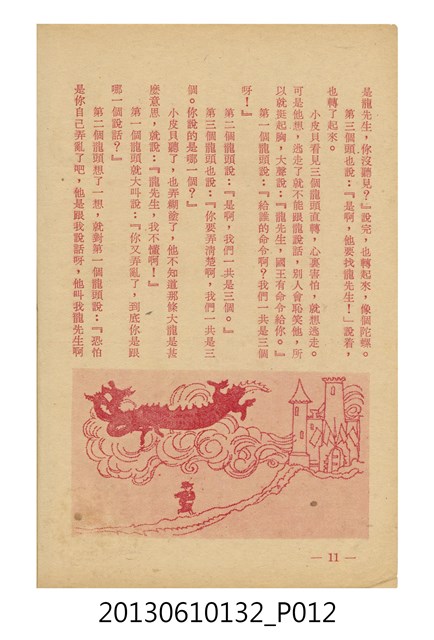 是龍先生，你沒聽見？』說完，也轉起來，像個陀螺。
第三個頭也說：『是啊，他要找龍先生！』說着，
也轉了起來。
小皮貝看見三個龍頭直轉，心裏害怕，就想逃走。
可是他想，逃走了就不能跟龍說話，別人會恥笑他，所
以就挺起胸，大聲說：『龍先生，國王有命令給你。』
第一個龍頭說：『給誰的命令啊？我們一共是三個
呀！』
第二個龍頭說：『是啊，我們一共是三個。』
第三個龍頭也說：『你要弄清楚啊，我們一共是三
個。你說的是哪一個？』
小皮貝聽了，也弄糊塗了，他不知道那條大龍是甚
麼意思，就說：『龍先生，我不懂啊！』
第一個龍頭就大叫說：『你又弄亂了，到底你是跟
哪一個說話？』
第二個龍頭想了一想，就對第一個龍頭說：『恐怕
是你自己弄亂了吧，他是跟我說話呀，他叫我龍先生啊
— 11 —
20130610132_P012